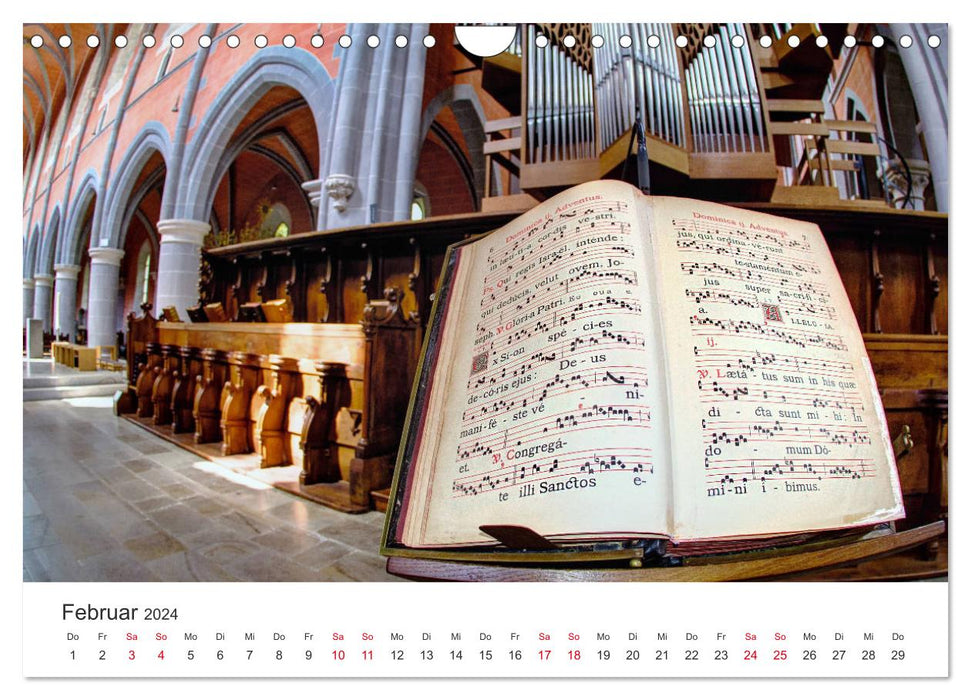 6 Dominica ij. Adventus.
in lætí-ti-a cordis ve-stri.
Ps. Qui regis Israel, inténde:
qui dedúcis, velut ovem, Jo-
seph. ℣. Glória Patri. E u o u a e.
Ex Si-on spé - ci-es
de-có-ris ejus: De - us
mani-fé - ste vé - ni-
et. ℣. Congregá-
te illi Sanctos e-
Dominica ij. Adventus. 7
jus, qui ordina-vé-runt
testaméntum e-
jus super sa-cri-fí-ci-
a. ALLELÚ-IA.
ij.
℣. Lætá - tus sum in his quæ
di - cta sunt mi - hi: In
do - mum Dó-
mi-ni í - bimus.
Februar 2024
Do Fr Sa So Mo Di Mi Do Fr Sa So Mo Di Mi Do Fr Sa So Mo Di Mi Do Fr Sa So Mo Di Mi Do
1 2 3 4 5 6 7 8 9 10 11 12 13 14 15 16 17 18 19 20 21 22 23 24 25 26 27 28 29